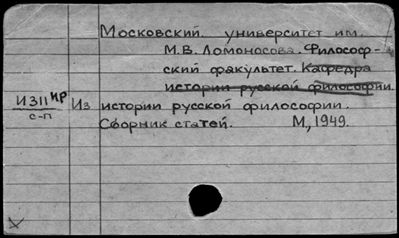 Московский университет им.
М.В. Ломоносова. Философ-
ский факультет. Кафедра
истории русской философии.
ИЗII ИР Из истории русской философии.
с-п Сборник статей. М., 1949.
X